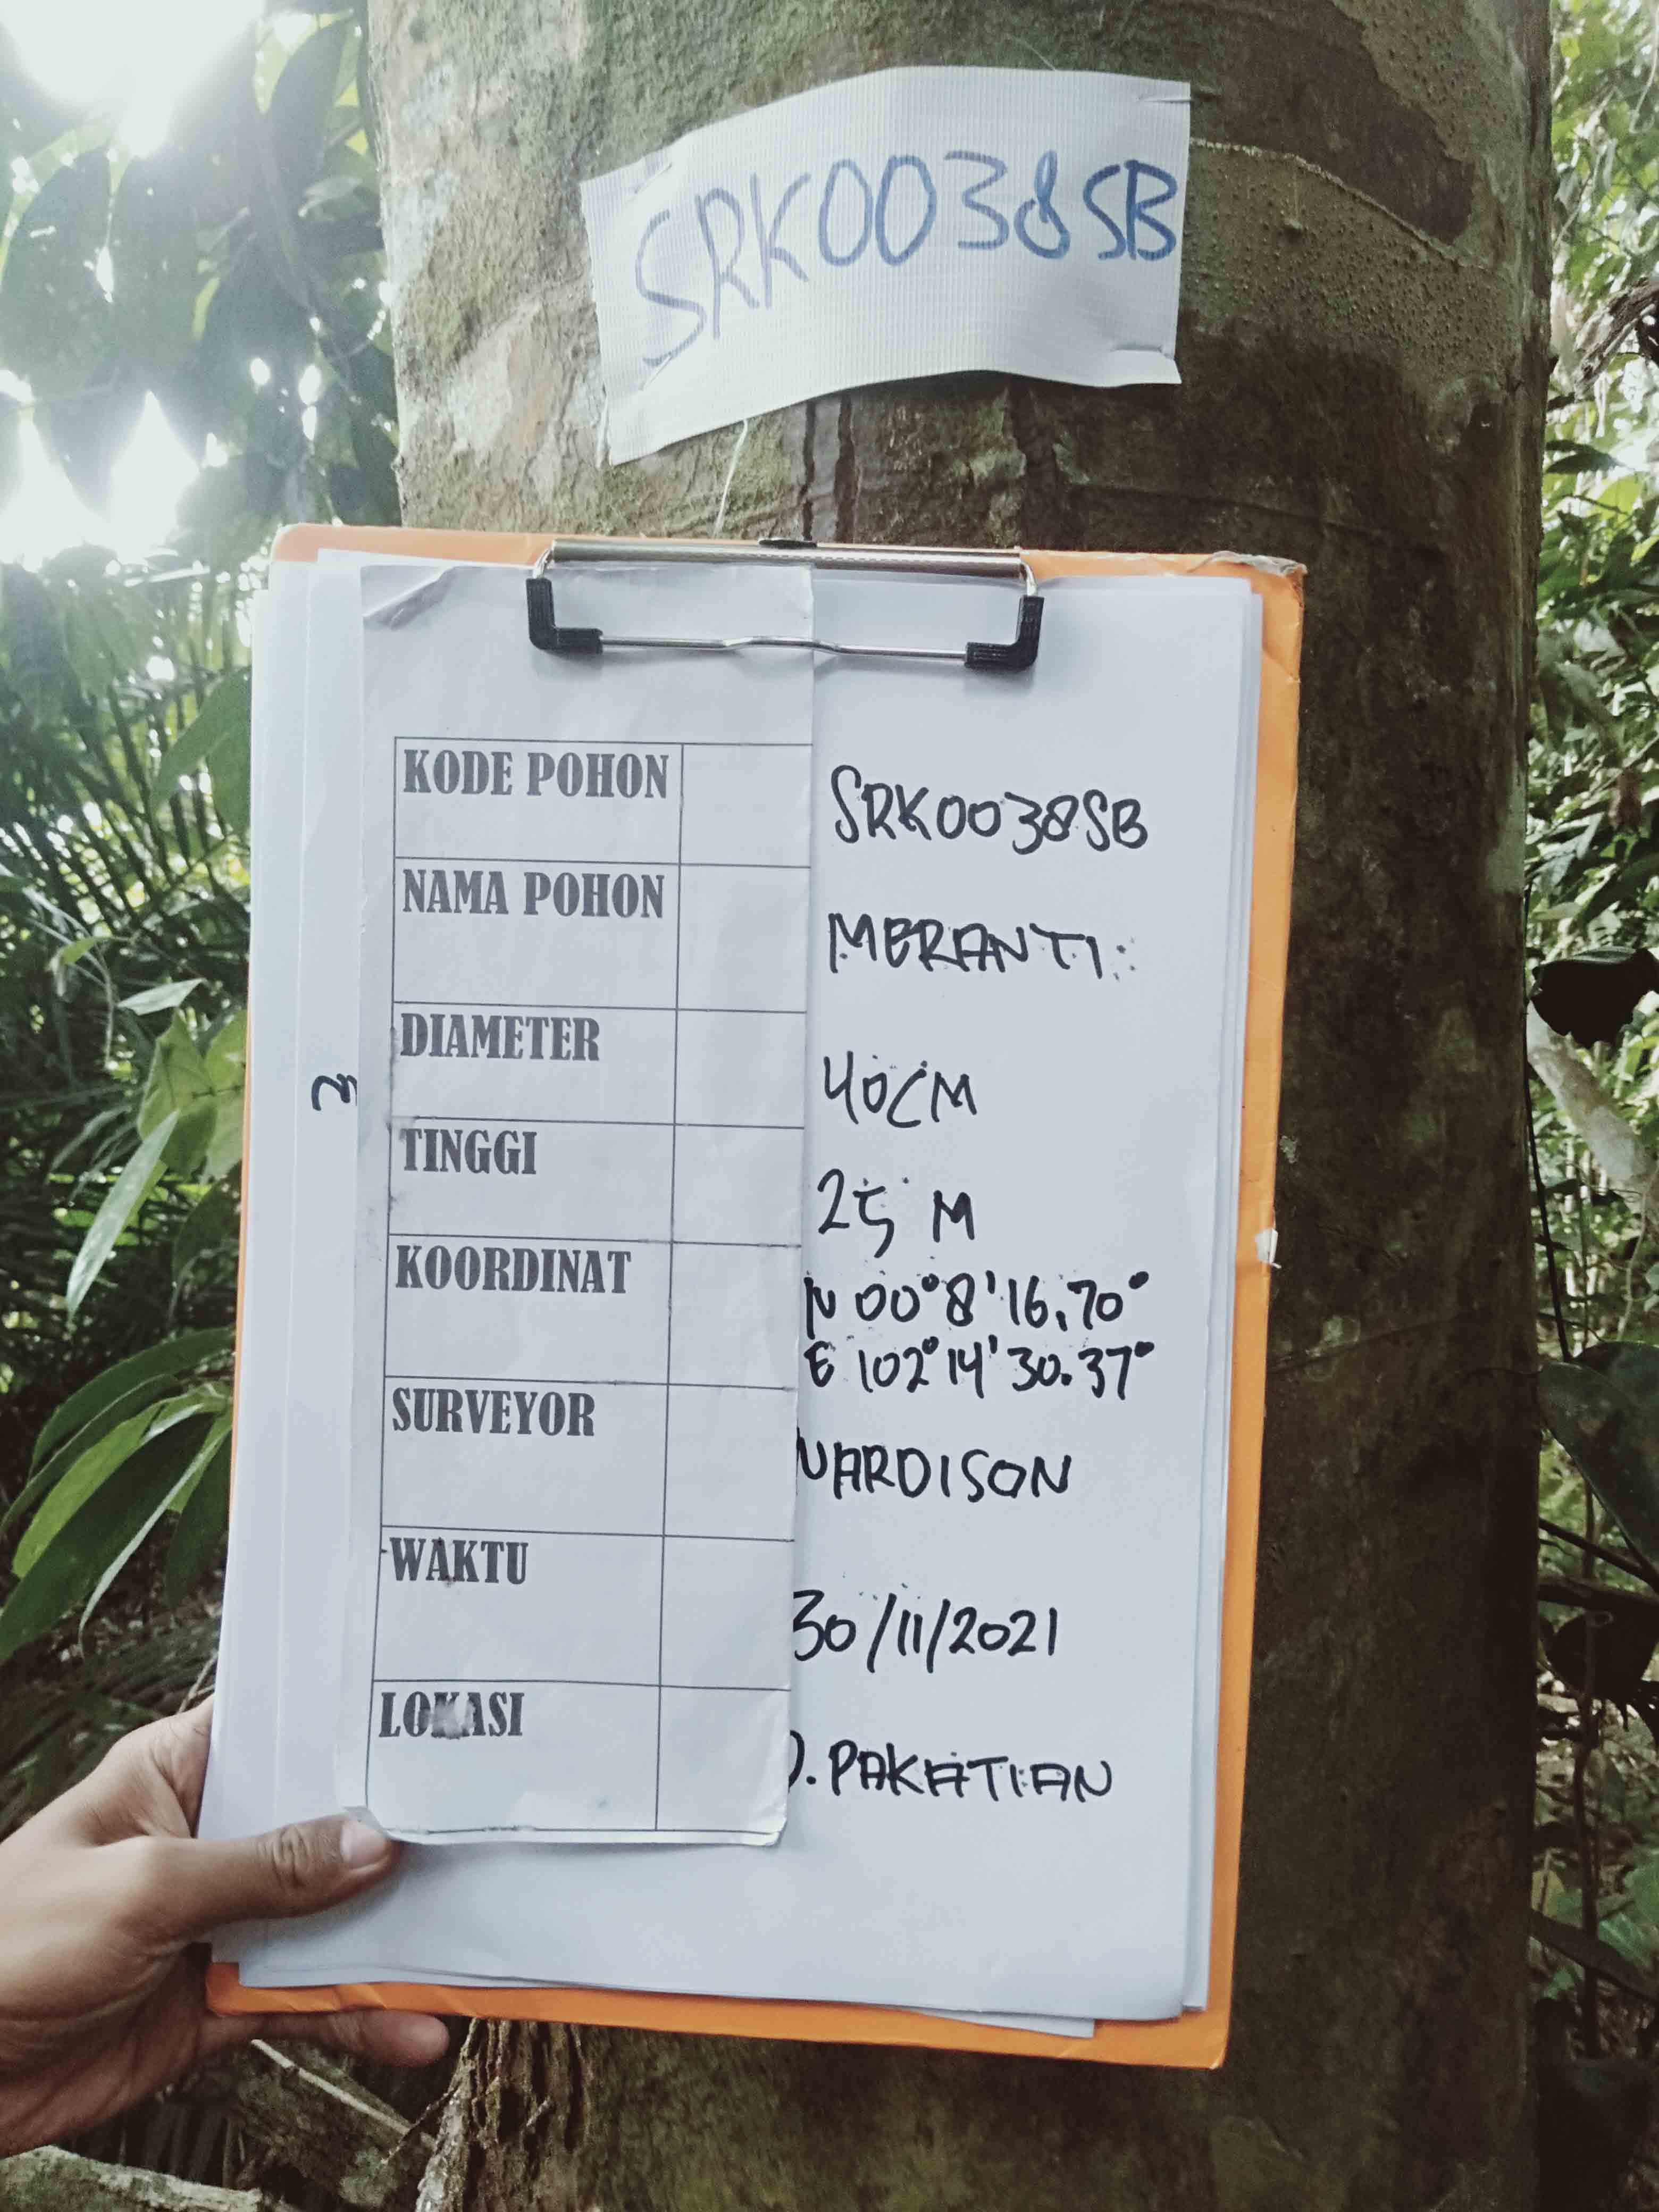 SRK0038SB
KODE POHON SRK0038SB
NAMA POHON MERANTI
DIAMETER 40CM
TINGGI 25 M
KOORDINAT N 00°8'16.70°
E 102°14'30.37°
SURVEYOR
WAKTU 30/11/2021
LOKASI PAKATIAN